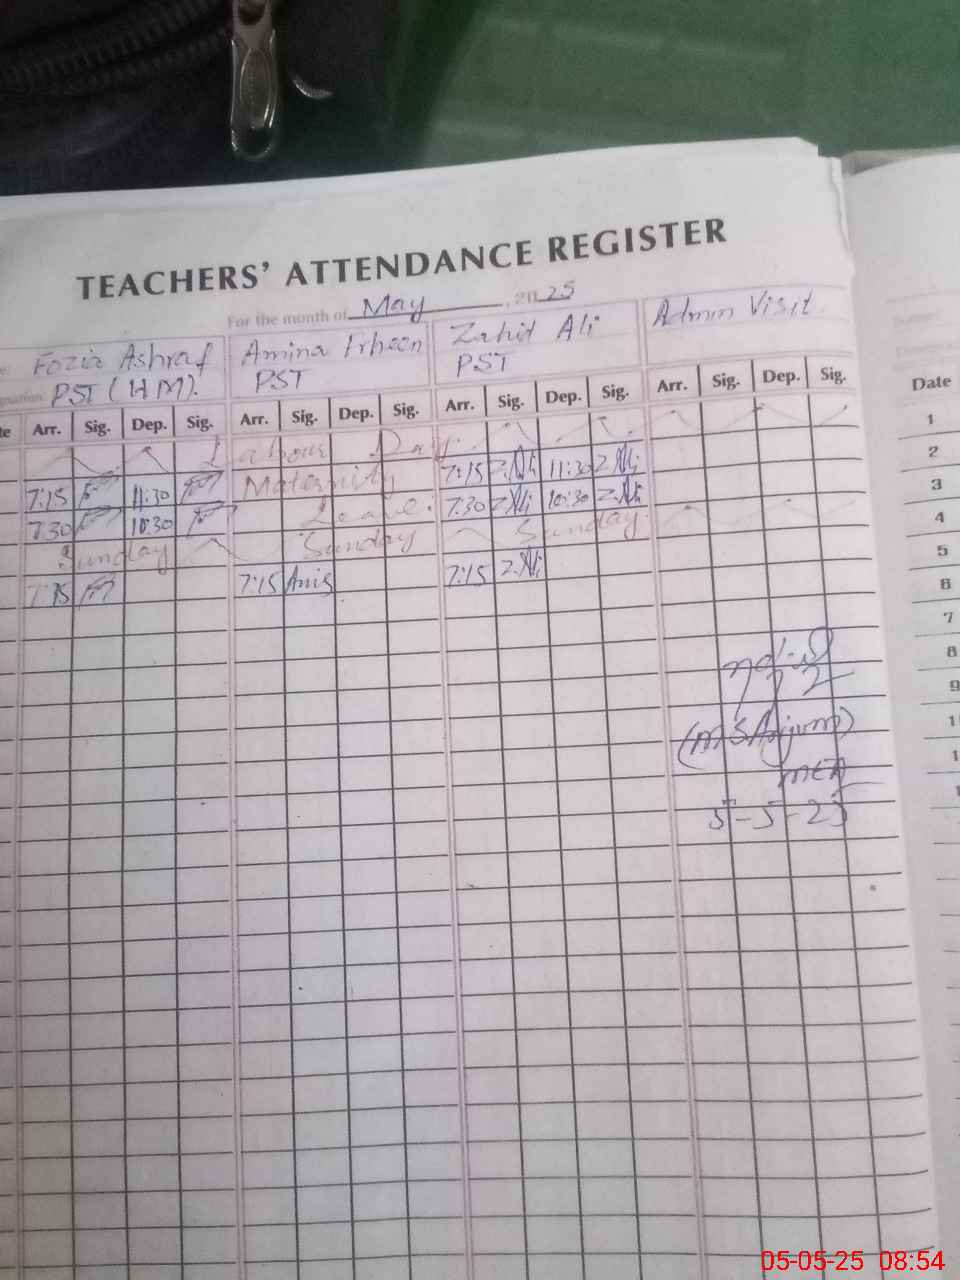 TEACHERS' ATTENDANCE REGISTER
For the month of May, 2025
Fozia Ashraf Amina Zahid Ali Admin Visit
PST (HM). PST PST
Arr. Sig. Dep. Sig. Arr. Sig. Dep. Sig. Arr. Sig. Dep. Sig. Arr. Sig. Dep. Sig. Date
Labour Day. 1
7:15 11:30 Maternity 7:15 Z.Ali 11:30 Z.Ali 2
7:30 10:30 Leave. 7:30 Z.Ali 10:30 Z.Ali 3
Sunday Sunday Sunday. 4
7:15 7:15 7:15 Z.Ali 5
6
7
8
9
(MS Anjum)
MEA
5-5-25
05-05-25 08:54